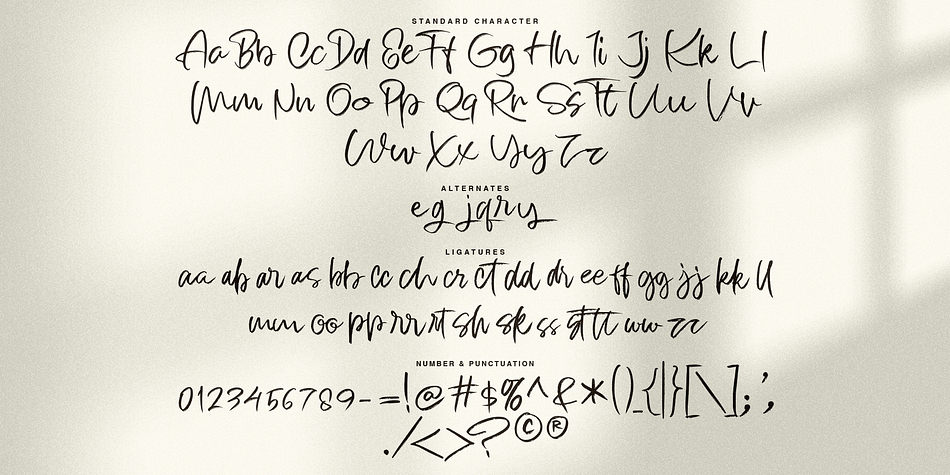 STANDARD CHARACTER
Aa Bb Cc Dd Ee Ff Gg Hh Ii Jj Kk Ll
Mm Nn Oo Pp Qq Rr Ss Tt Uu Vv
Ww Xx Yy Zz
ALTERNATES
eg jqry
LIGATURES
aa ab ar as bb cc ch cr ct dd dr ee ff gg jj kk ll
mm oo pp rr rt sh sk ss st tt ww zz
NUMBER & PUNCTUATION
0123456789-=!@#$%^&*()_{|}[\];',
./<>?©®